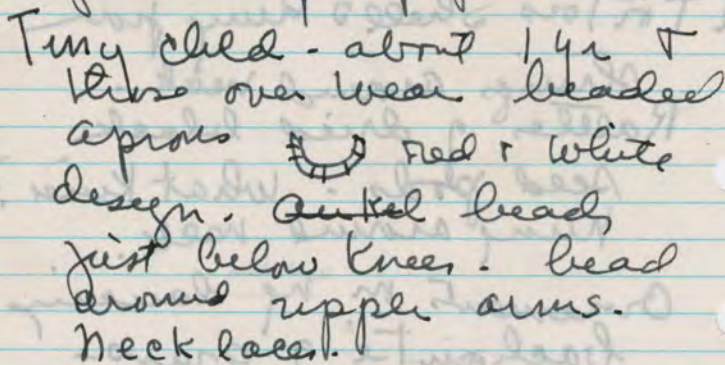 Tiny child - about 1 yr +
those over wear beaded
aprons red + white
design. Ankel beads
just below knees. bead
around upper arms.
Necklaces.